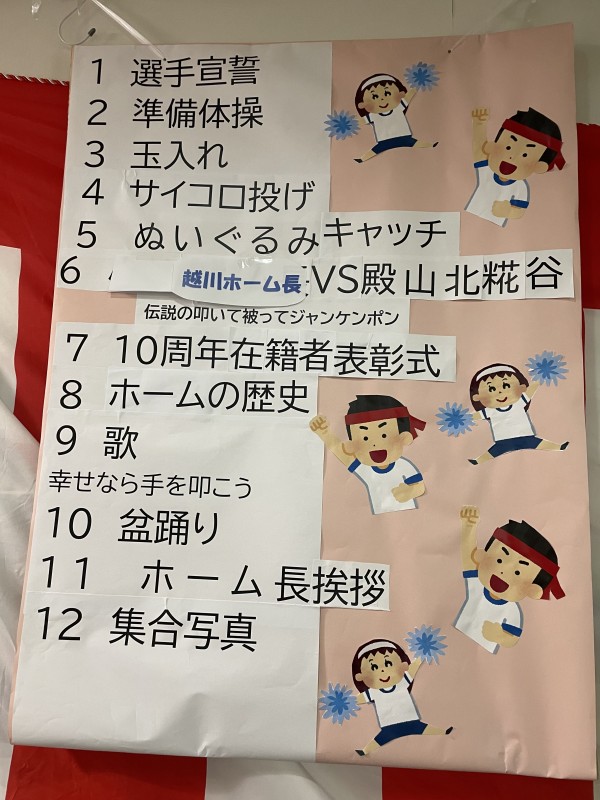 1 選手宣誓
2 準備体操
3 玉入れ
4 サイコロ投げ
5 ぬいぐるみキャッチ
6 越川ホーム長VS殿山北糀谷
伝説の叩いて被ってジャンケンポン
7 10周年在籍者表彰式
8 ホームの歴史
9 歌
幸せなら手を叩こう
10 盆踊り
11 ホーム長挨拶
12 集合写真